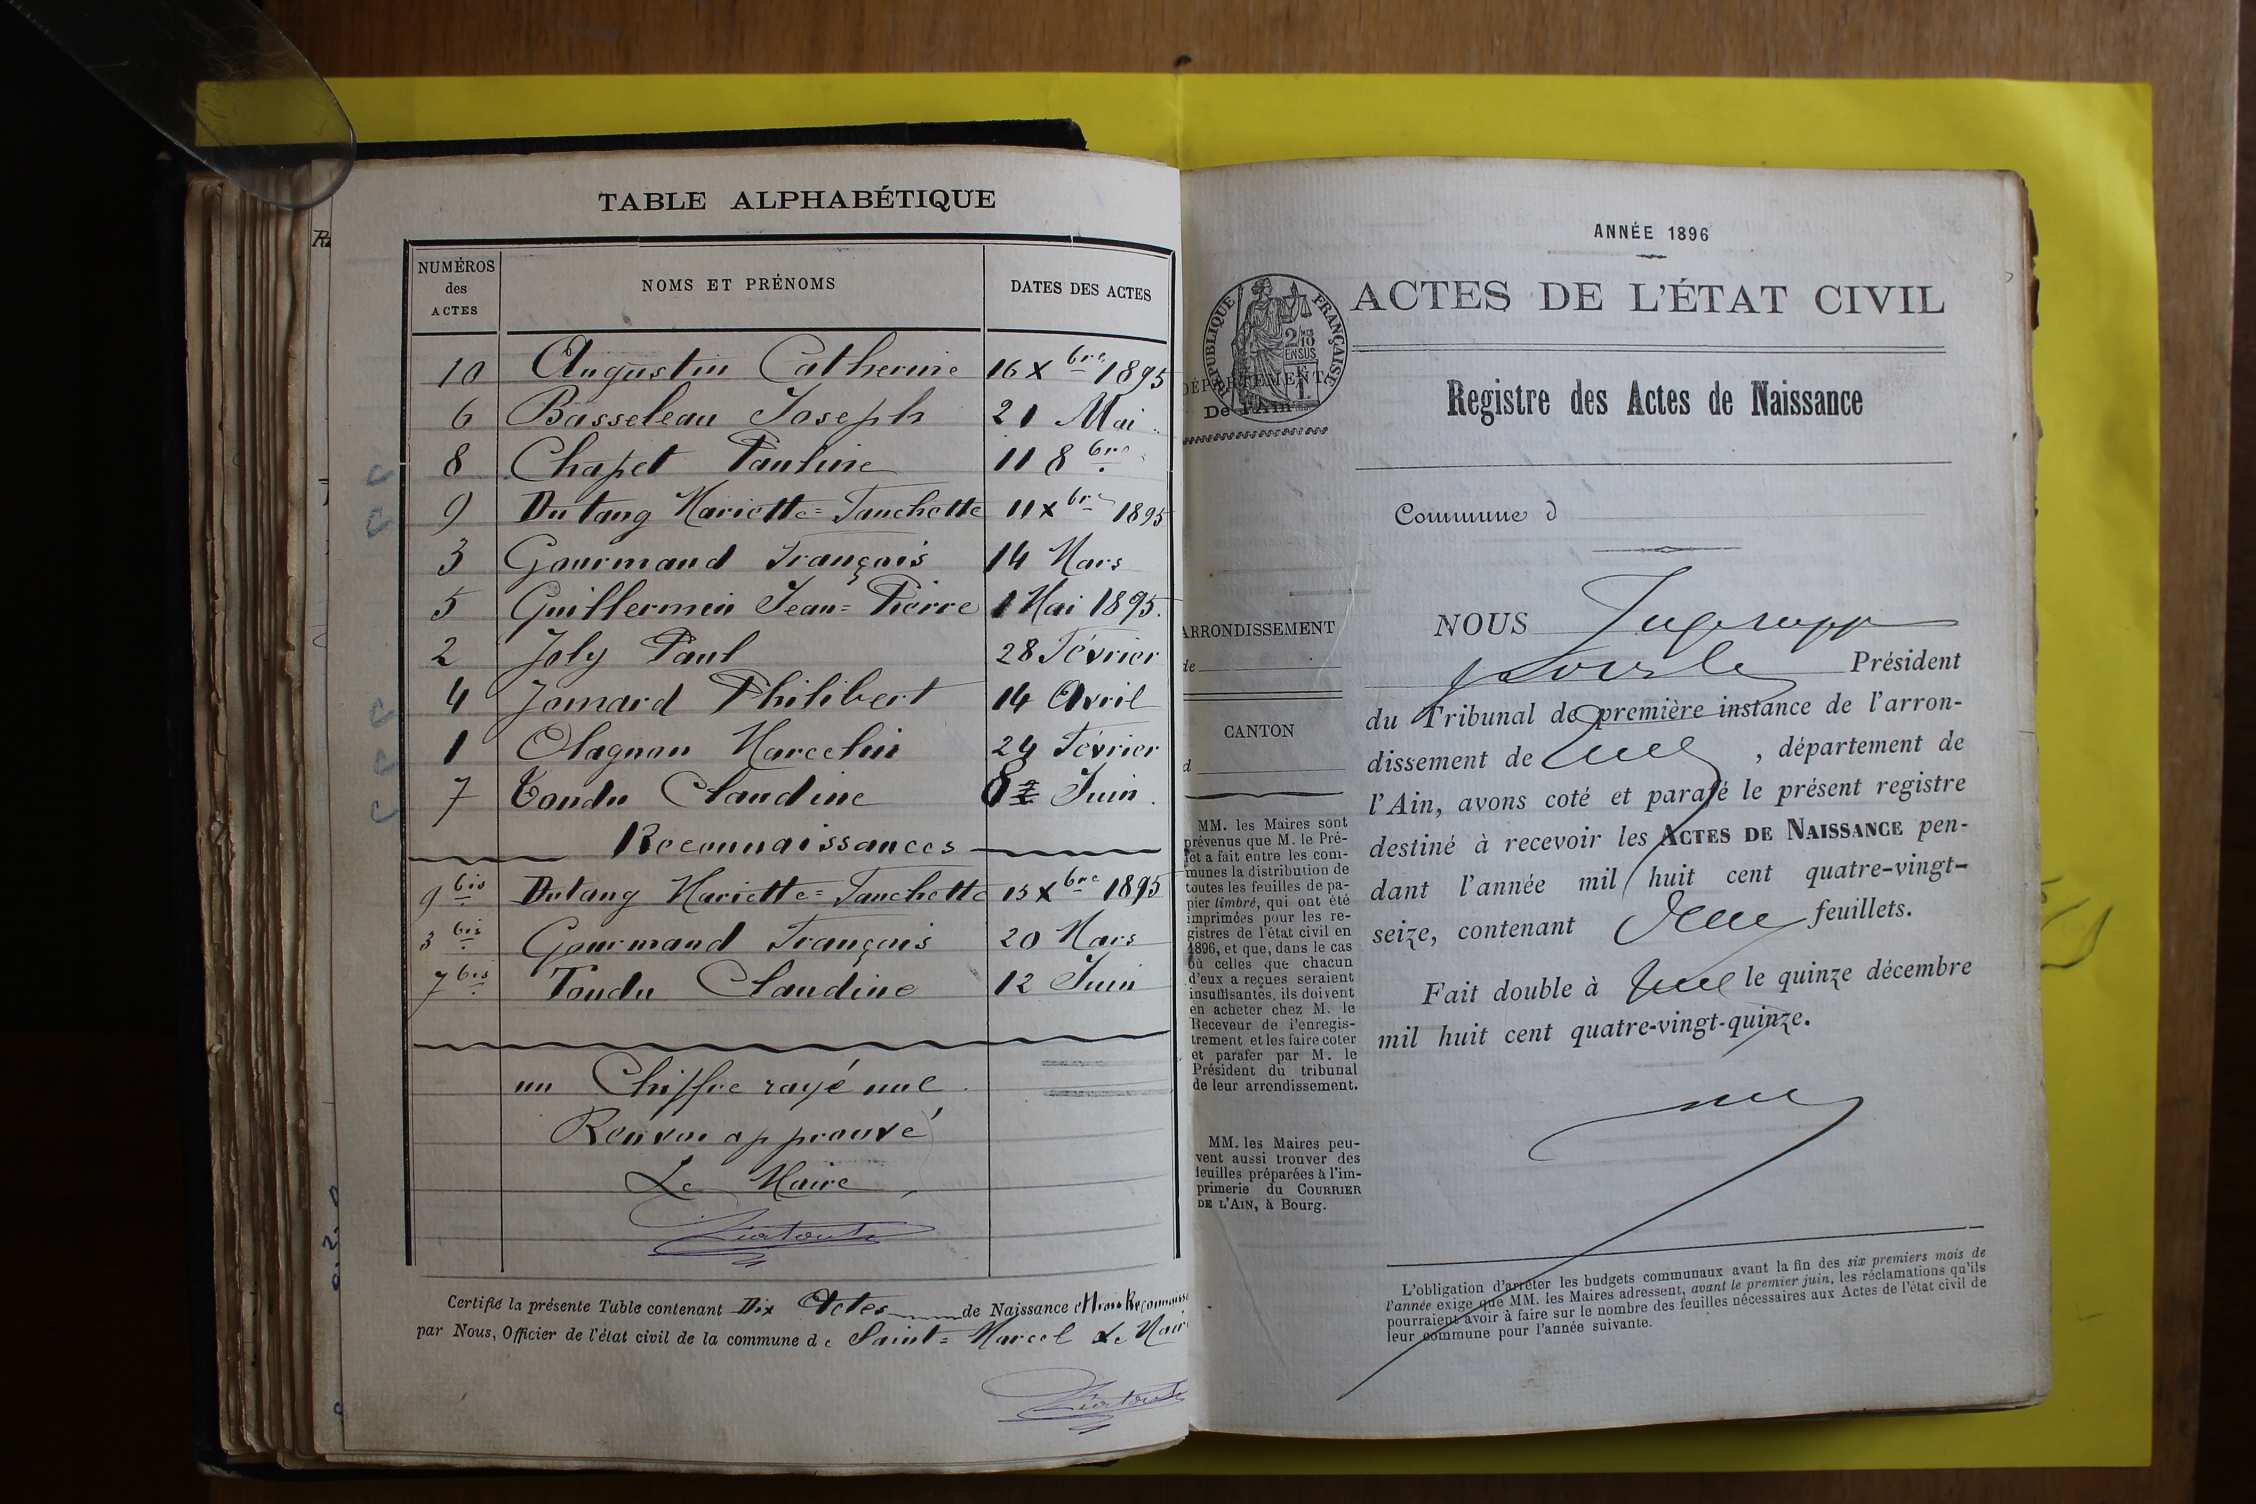 TABLE ALPHABÉTIQUE
NUMÉROS des ACTES NOMS ET PRÉNOMS DATES DES ACTES
10 Augustin Catherine 16 Xbre 1895
6 Basseleau Joseph 21 Mai
8 Chapet Pauline 11 8bre
9 Dutang Mariette=Fanchette 11 Xbre 1895
3 Gourmand François 14 Mars
5 Guillermin Jean=Pierre 1 Mai 1895.
2 Joly Paul 28 Février
4 Jomard Philibert 14 Avril
1 Olagnon Marcelin 24 Février
7 Tondu Claudine 8 Juin.
Reconnaissances
9 bis Dutang Mariette=Fanchette 15 Xbre 1895
3 bis Gourmand François 20 Mars
7 bis Tondu Claudine 12 Juin
un Chiffre rayé nul
Renvoi approuvé
Le Maire,
Certifié la présente Table contenant Dix Actes de Naissance et trois Reconnaiss
par Nous, Officier de l'état civil de la commune de Saint=Marcel Le Mair
ANNÉE 1896
RÉPUBLIQUE FRANÇAISE
2/10 EN SUS
ACTES DE L'ÉTAT CIVIL
DÉPARTEMENT
De l'Ain
Registre des Actes de Naissance
Commune d
ARRONDISSEMENT
de
CANTON
d
MM. les Maires sont
prévenus que M. le Pré-
fet a fait entre les com-
munes la distribution de
toutes les feuilles de pa-
pier timbré, qui ont été
imprimées pour les re-
gistres de l'état civil en
1896, et que, dans le cas
où celles que chacun
d'eux a reçues seraient
insuffisantes, ils doivent
en acheter chez M. le
Receveur de l'enregis-
trement et les faire coter
et parafer par M. le
Président du tribunal
de leur arrondissement.
MM. les Maires peu-
vent aussi trouver des
feuilles préparées à l'im-
primerie du COURRIER
DE L'AIN, à Bourg.
NOUS
Président
du Tribunal de première instance de l'arron-
dissement de , département de
l'Ain, avons coté et parafé le présent registre
destiné à recevoir les ACTES DE NAISSANCE pen-
dant l'année mil huit cent quatre-vingt-
seize, contenant feuillets.
Fait double à le quinze décembre
mil huit cent quatre-vingt-quinze.
L'obligation d'arrêter les budgets communaux avant la fin des six premiers mois de
l'année exige que MM. les Maires adressent, avant le premier juin, les réclamations qu'ils
pourraient avoir à faire sur le nombre des feuilles nécessaires aux Actes de l'état civil de
leur commune pour l'année suivante.